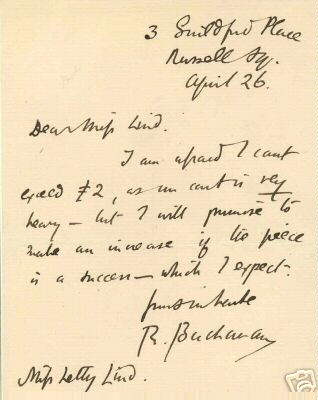 3 Guildford Place
Russell Sq.
April 26.
Dear Miss Lind.
I am afraid I can't
exceed £2, as our cast is very
heavy – but I will promise to
make an increase if the piece
is a success – which I expect.
R. Buchanan
Miss Letty Lind.